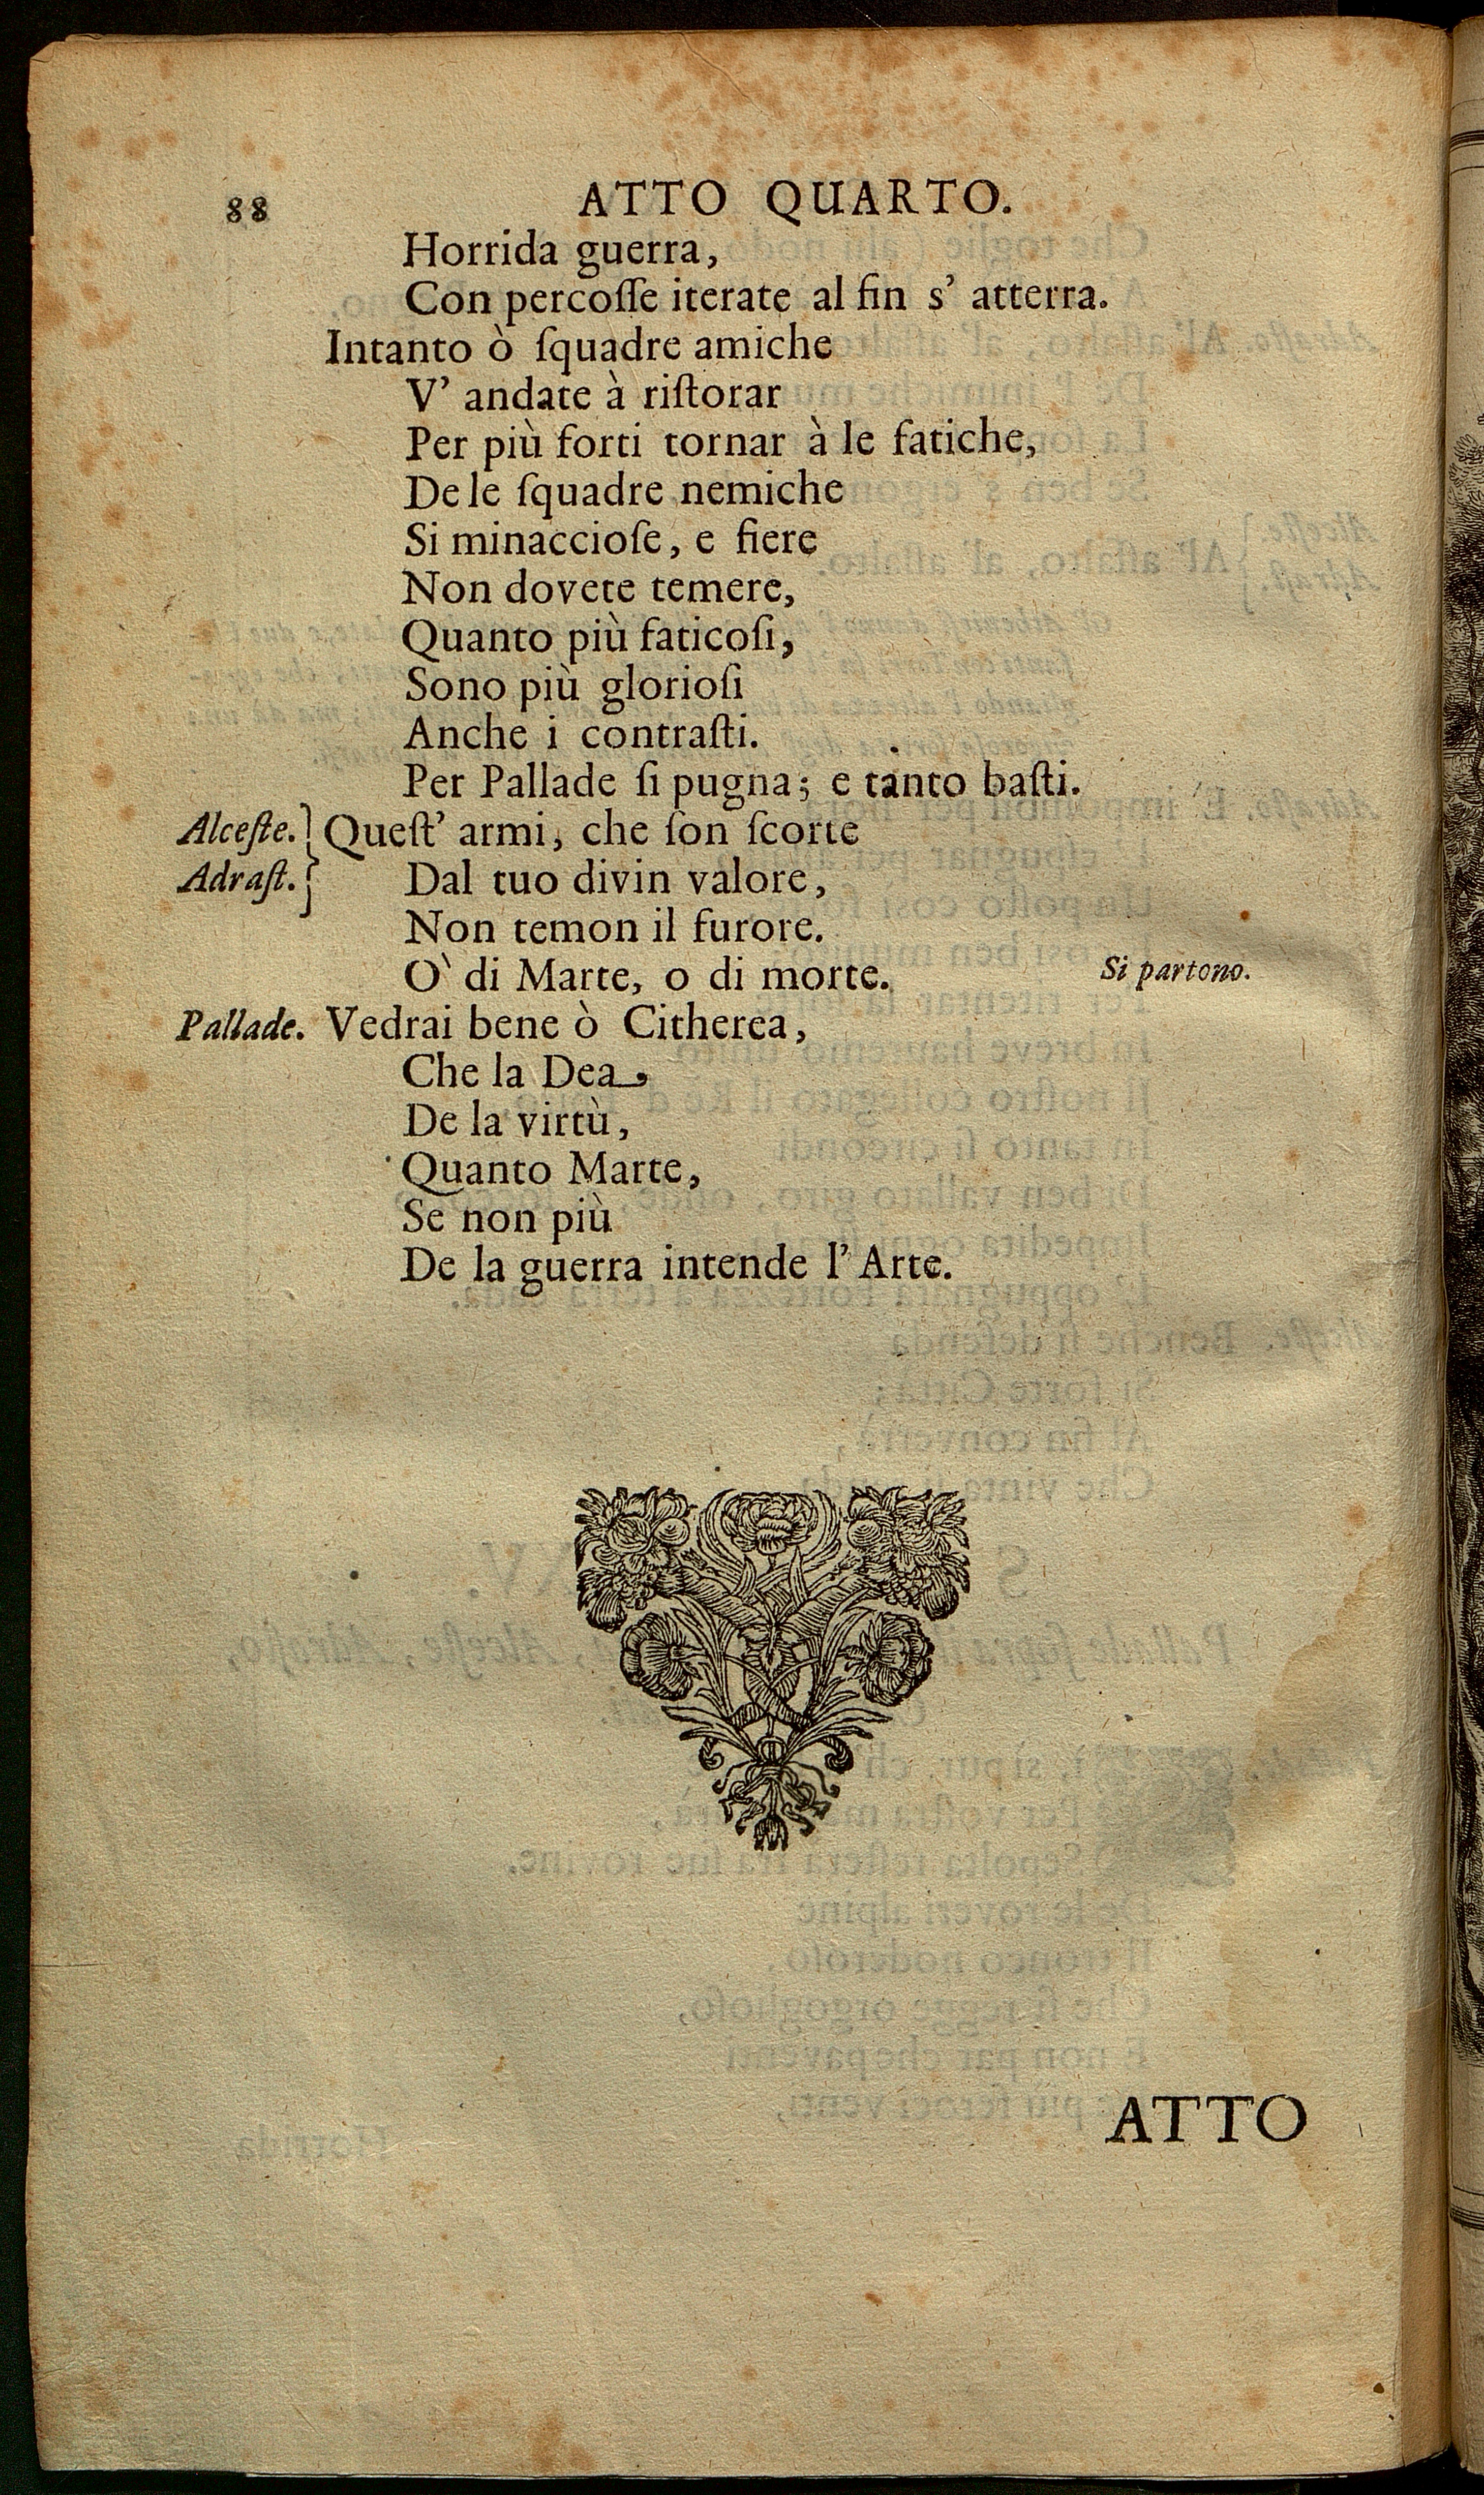 88 ATTO QUARTO.
Horrida guerra,
Con percoſſe iterate al fin s' atterra.
Intanto ò ſquadre amiche
V' andate à riſtorar
Per più forti tornar à le fatiche,
De le ſquadre nemiche
Si minaccioſe, e fiere
Non dovete temere,
Quanto più faticoſi,
Sono più glorioſi
Anche i contraſti.
Per Pallade ſi pugna; e tanto baſti.
Alceſte. } Queſt' armi, che ſon ſcorte
Adraſt. } Dal tuo divin valore,
Non temon il furore.
O' di Marte, o di morte. Si partono.
Pallade. Vedrai bene ò Citherea,
Che la Dea,
De la virtù,
Quanto Marte,
Se non più
De la guerra intende l' Arte.
ATTO